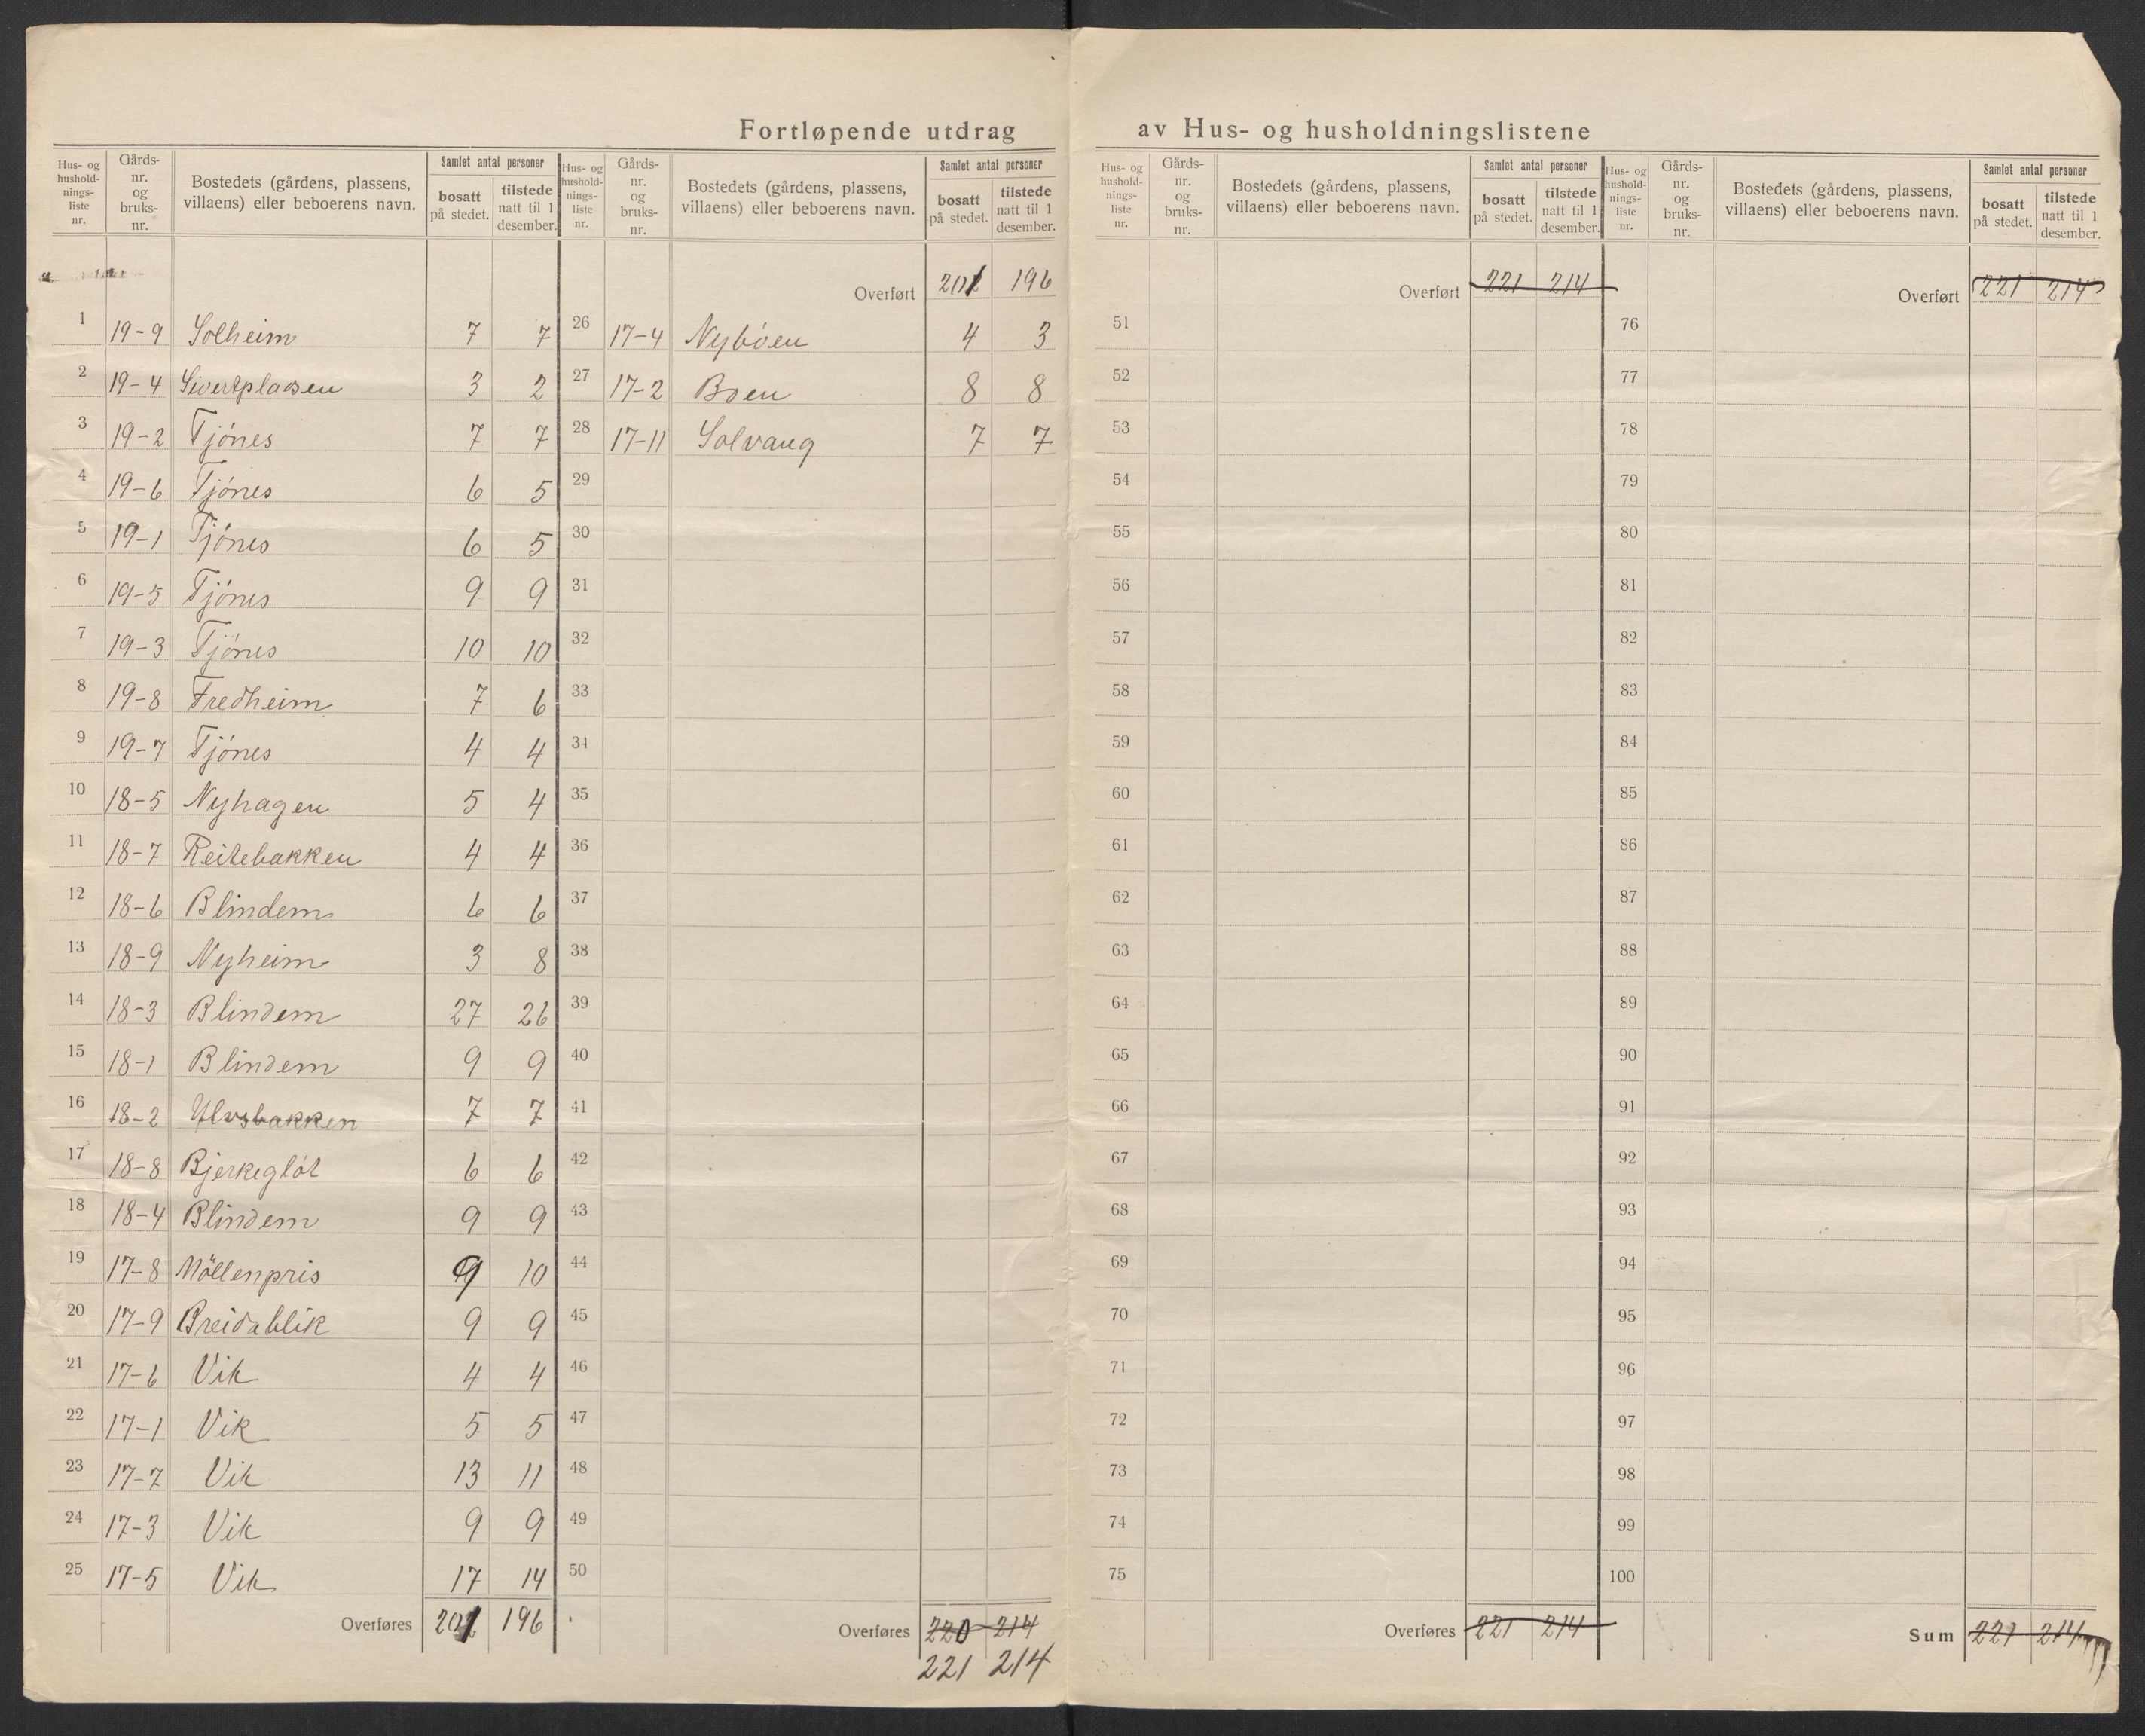 Fortløpende utdrag av Hus- og husholdningslistene
Hus- og hushold-nings-liste nr. Gårds-nr. og bruks-nr. Bostedets (gårdens, plassens, villaens) eller beboerens navn. Samlet antal personer bosatt på stedet. tilstede natt til 1 desember.
1 19-9 Solheim 7 7
2 19-4 Sivertpladsen 3 2
3 19-2 Tjónes 7 7
4 19-6 Tjónes 6 5
5 19-1 Tjónes 6 5
6 19-5 Tjónes 9 9
7 19-3 Tjónes 10 10
8 19-8 Fredheim 7 6
9 19-7 Tjónes 4 4
10 18-5 Nyhagen 5 4
11 18-7 Reitebakken 4 4
12 18-6 Blindem 6 6
13 18-9 Nyheim 3 8
14 18-3 Blindem 27 26
15 18-1 Blindem 9 9
16 18-2 Ulvsbakken 7 7
17 18-8 Bjerkeglót 6 6
18 18-4 Blindem 9 9
19 17-8 Möllenpris 9 10
20 17-9 Breidablik 9 9
21 17-6 Vik 4 4
22 17-1 Vik 5 5
23 17-7 Vik 13 11
24 17-3 Vik 9 9
25 17-5 Vik 17 14
Overføres 201 196
Hus- og hushold-nings-liste nr. Gårds-nr. og bruks-nr. Bostedets (gårdens, plassens, villaens) eller beboerens navn. Samlet antal personer bosatt på stedet. tilstede natt til 1 desember.
Overført 202 196
26 17-4 Nybóen 4 3
27 17-2 Boen 8 8
28 17-11 Solvang 7 7
29
30
31
32
33
34
35
36
37
38
39
40
41
42
43
44
45
46
47
48
49
50
Overføres 220 214
221 214
Hus- og hushold-nings-liste nr. Gårds-nr. og bruks-nr. Bostedets (gårdens, plassens, villaens) eller beboerens navn. Samlet antal personer bosatt på stedet. tilstede natt til 1 desember.
Overført 221 214
51
52
53
54
55
56
57
58
59
60
61
62
63
64
65
66
67
68
69
70
71
72
73
74
75
Overføres 221 214
Hus- og hushold-nings-liste nr. Gårds-nr. og bruks-nr. Bostedets (gårdens, plassens, villaens) eller beboerens navn. Samlet antal personer bosatt på stedet. tilstede natt til 1 desember.
Overført 221 214
76
77
78
79
80
81
82
83
84
85
86
87
88
89
90
91
92
93
94
95
96
97
98
99
100
Sum 221 214